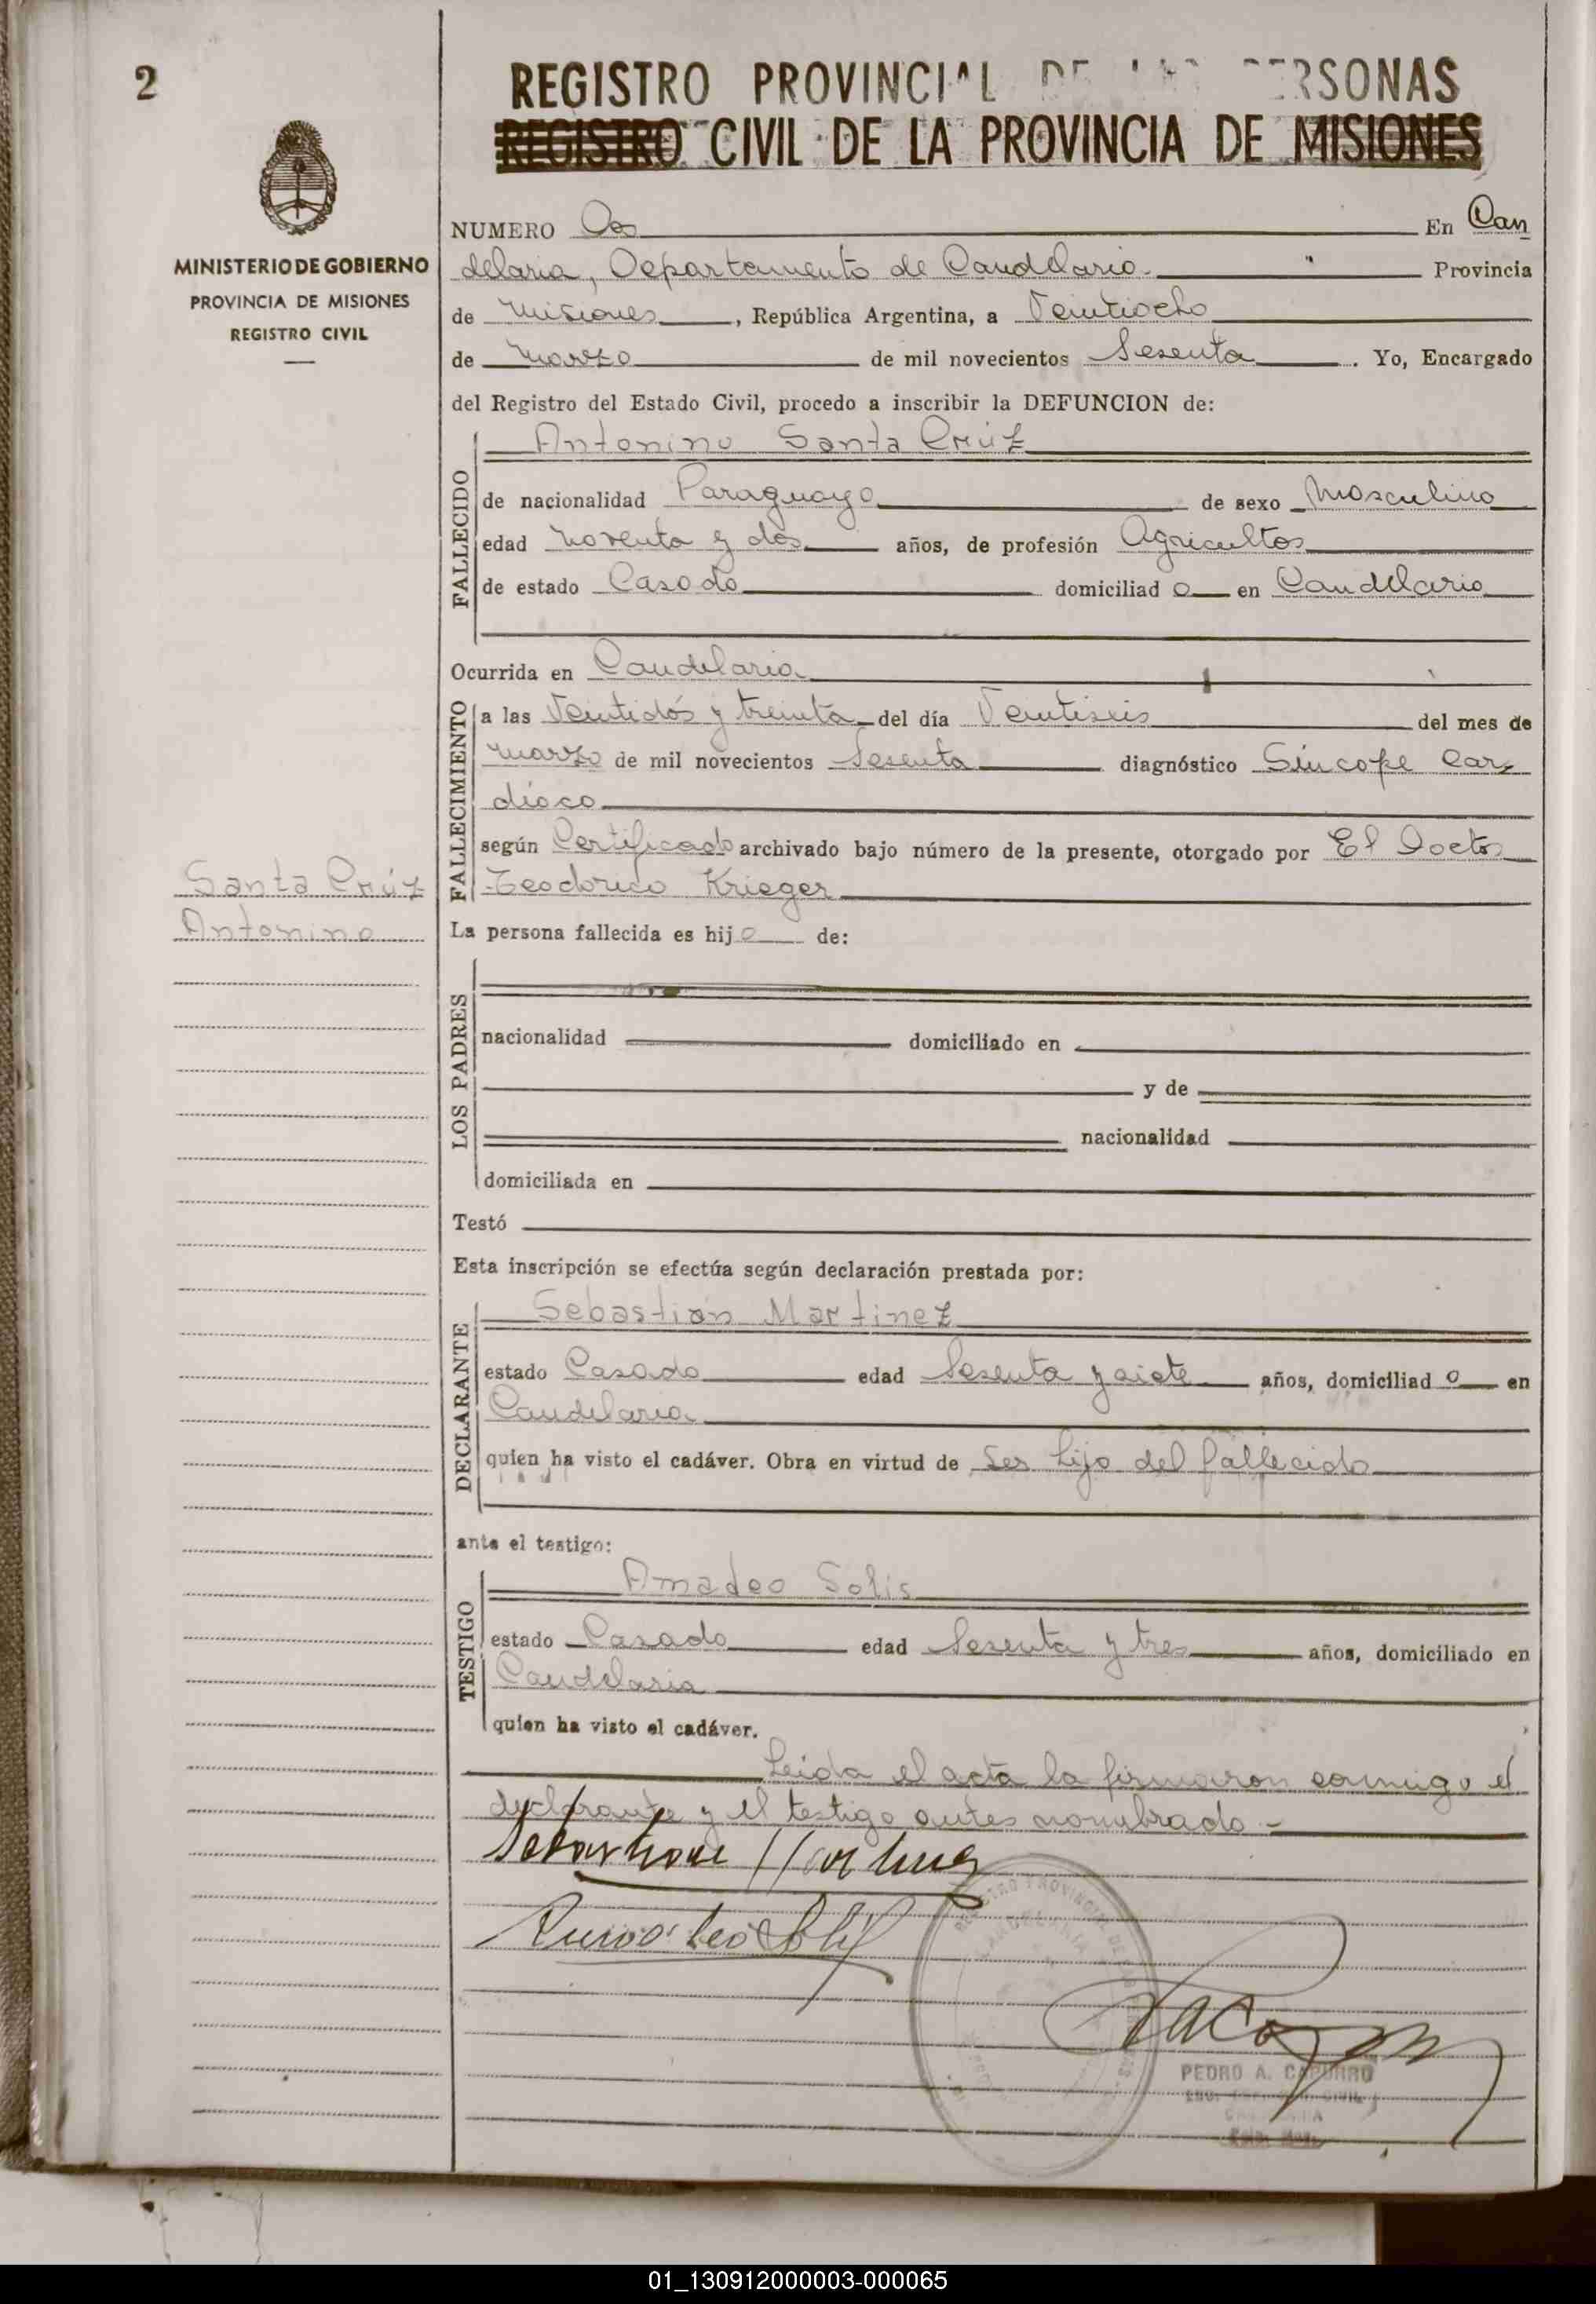 2
REGISTRO PROVINCIAL DE LAS PERSONAS
REGISTRO CIVIL DE LA PROVINCIA DE MISIONES
MINISTERIO DE GOBIERNO
PROVINCIA DE MISIONES
REGISTRO CIVIL
NUMERO Dos En Can
delaria, Departamento de Candelaria Provincia
de Misiones, República Argentina, a Veintiocho
de Marzo de mil novecientos Sesenta. Yo, Encargado
del Registro del Estado Civil, procedo a inscribir la DEFUNCION de:
FALLECIDO
Antonino Santa Crúz
de nacionalidad Paraguayo de sexo Masculino
edad Noventa y dos años, de profesión Agricultor
de estado Casado domiciliad o en Candelaria
Ocurrida en Candelaria
FALLECIMIENTO
a las Veintidós y treinta del día Veintiseis del mes de
Marzo de mil novecientos Sesenta diagnóstico Síncope Car
díaco
según Certificado archivado bajo número de la presente, otorgado por El Doctor
Teodorico Krieger
Santa Crúz
Antonino
La persona fallecida es hijo de:
LOS PADRES
nacionalidad domiciliado en
y de
nacionalidad
domiciliada en
Testó
Esta inscripción se efectúa según declaración prestada por:
DECLARANTE
Sebastián Martinez
estado Casado edad Sesenta y siete años, domiciliad o en
Candelaria
quien ha visto el cadáver. Obra en virtud de Ser hijo del fallecido
ante el testigo:
TESTIGO
Amadeo Solis
estado Casado edad Sesenta y tres años, domiciliado en
Candelaria
quien ha visto el cadáver.
Leída el acta la firmaron conmigo el
declarante y el testigo antes nombrado.-
Sebastian Martinez
REGISTRO PROVINCIAL DE LAS
CANDELARIA
PEDRO A. CAPURRO
01_130912000003-000065